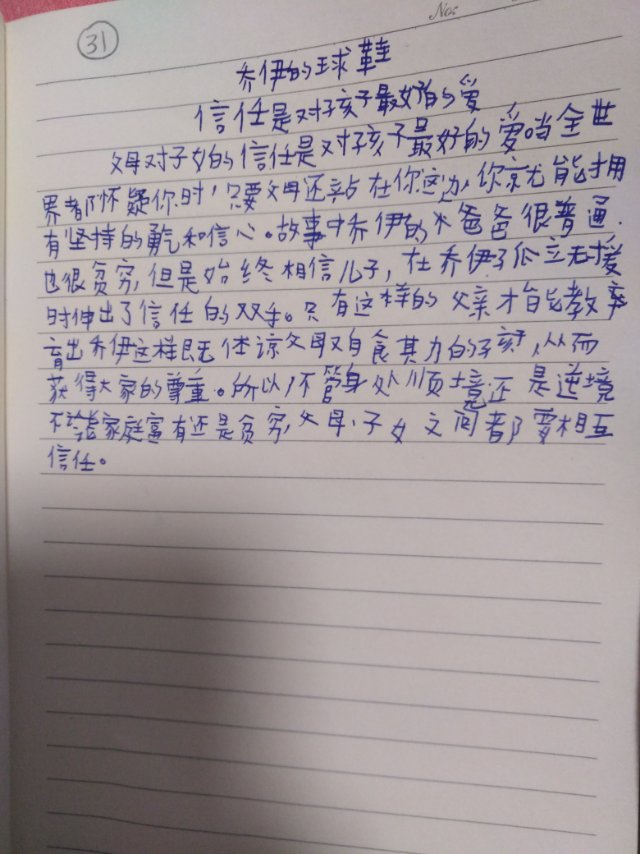 No:
31
乔伊的球鞋
信任是对孩子最好的爱
父母对子女的信任是对孩子最好的爱当全世
界都怀疑你时,只要父母还站在你这边,你就能拥
有坚持的勇气和信心。故事中乔伊的爸爸很普通.
也很贫穷,但是始终相信儿子,在乔伊孑孤立无援
时伸出了信任的双手。只有这样的父亲才能教
育出乔伊这样既体谅父母又自食其力的孩子,从而
获得大家的尊重。所以不管身处顺境还是逆境
不论家庭富有还是贫穷,父母、子女之间都要相互
信任。